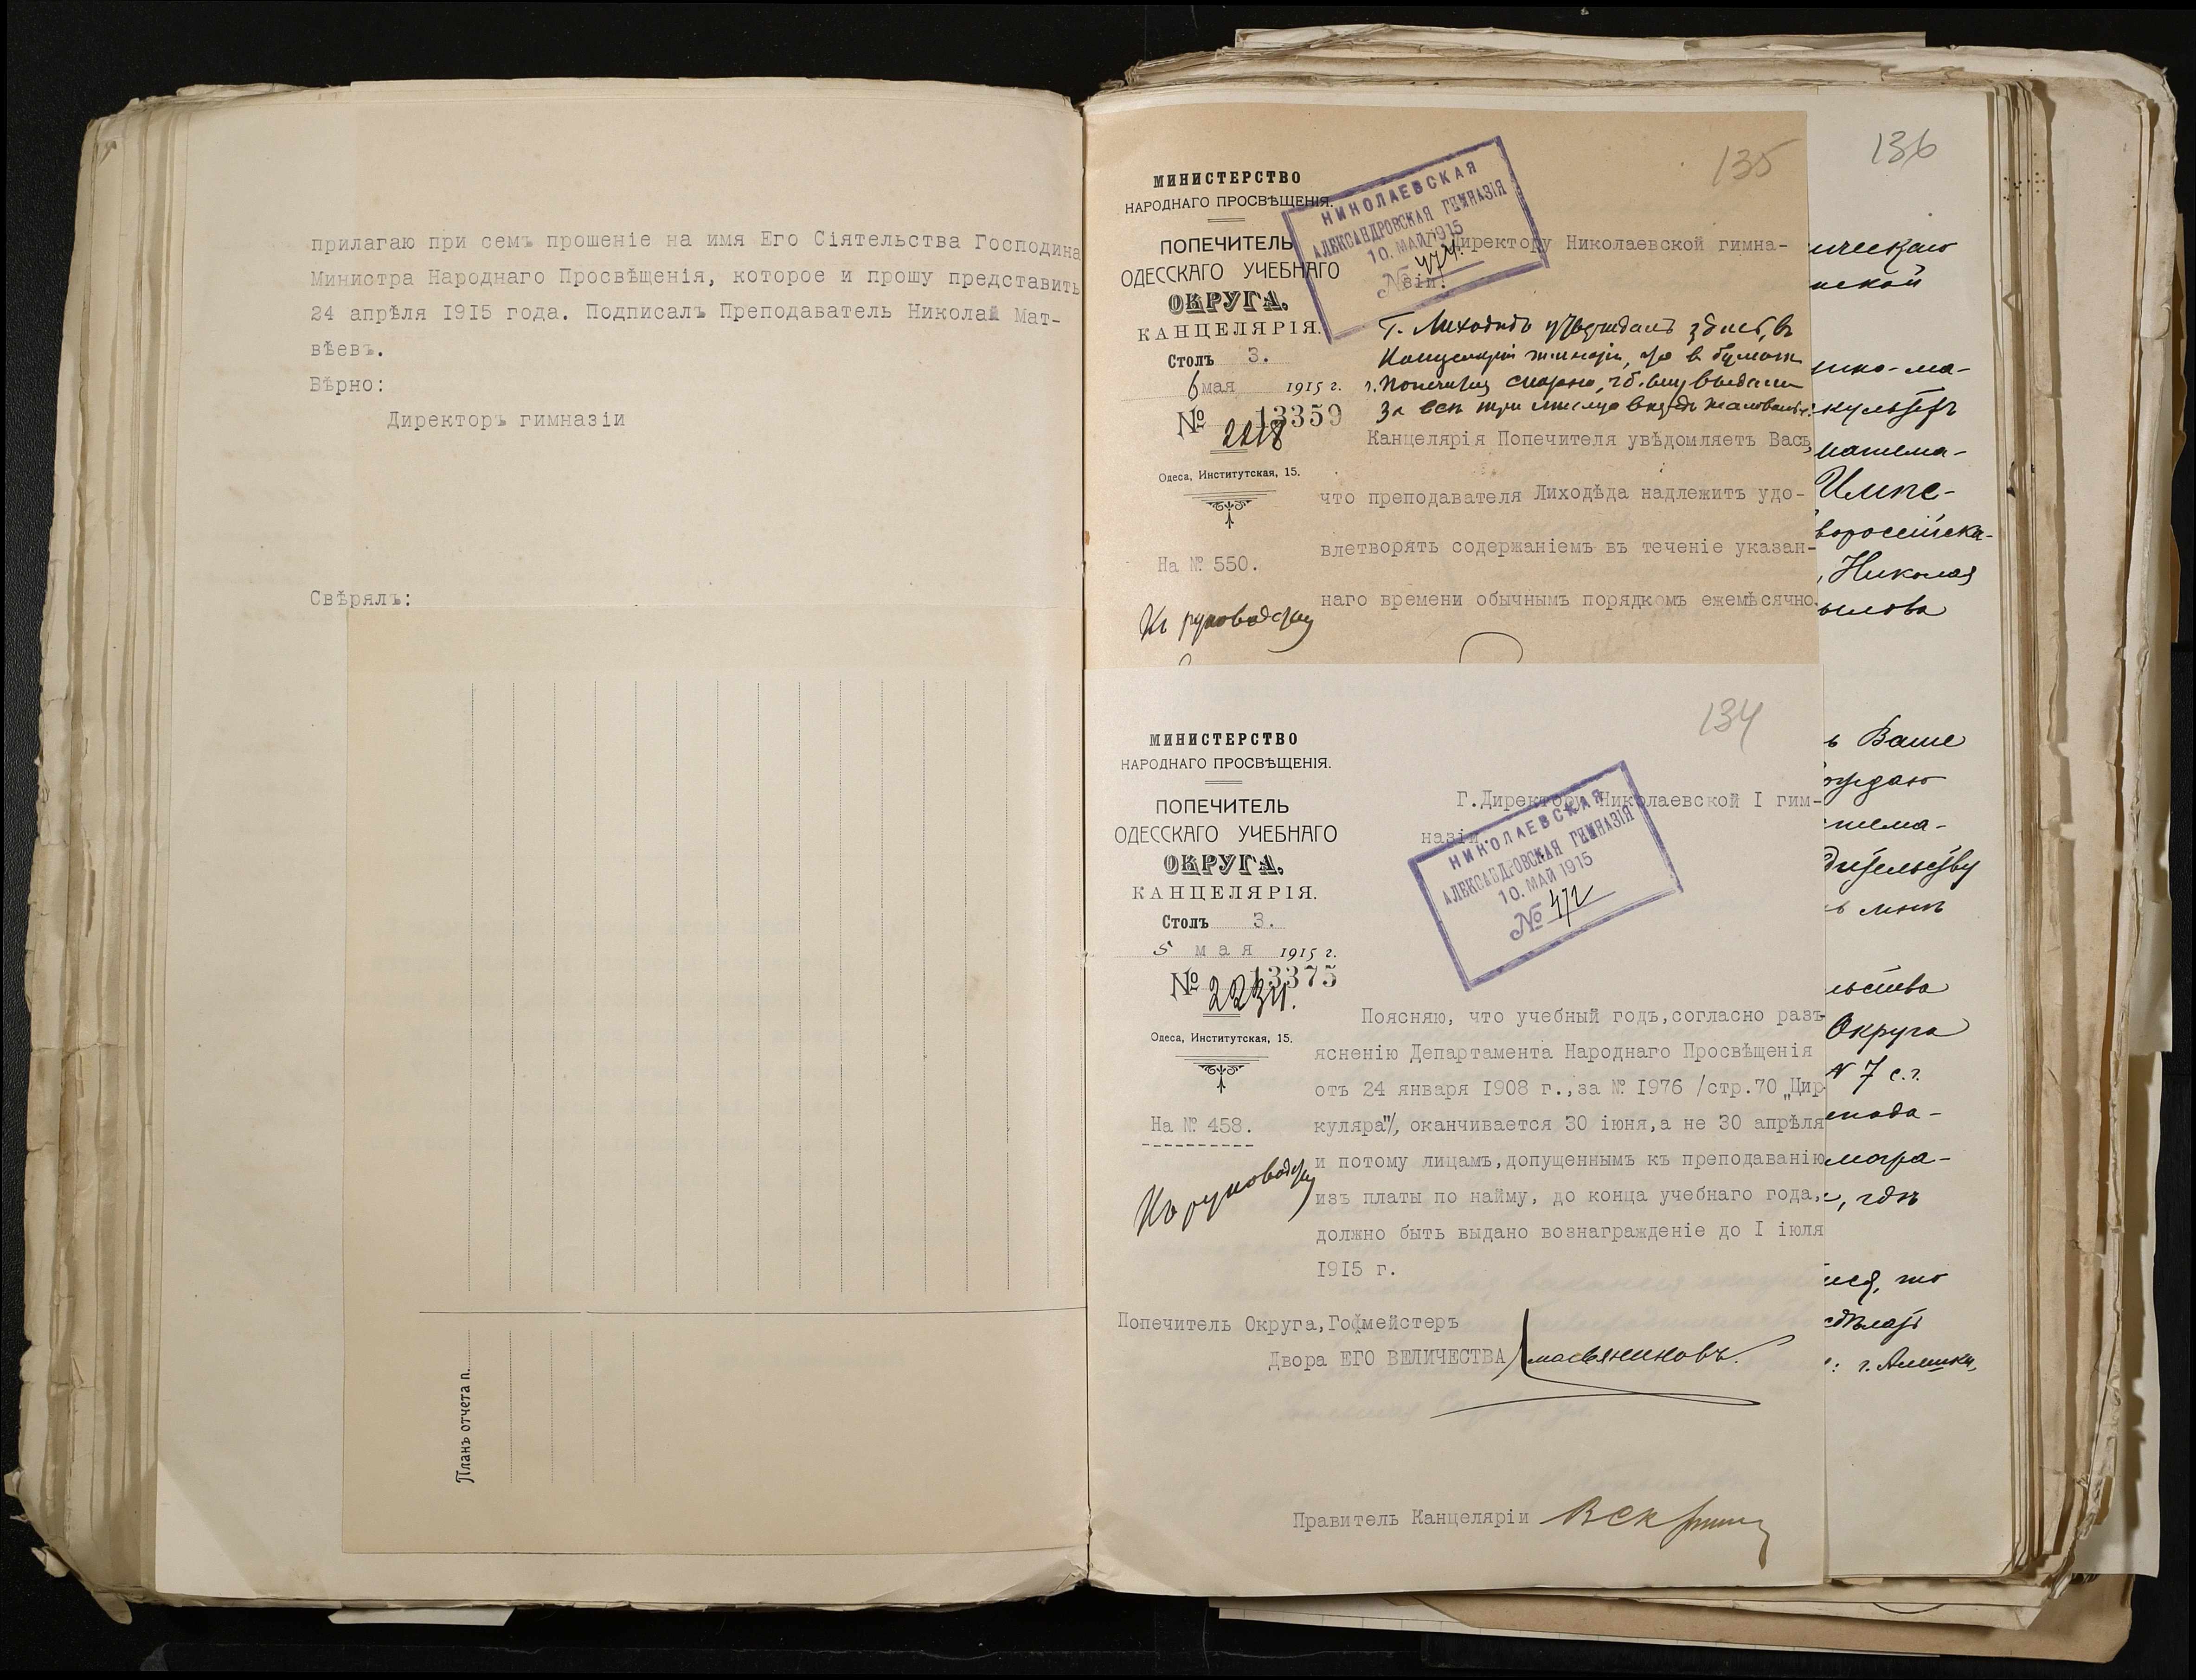 прилагаю при семъ прошеніе на имя Его Сіятельства Господина
Министра Народнаго Просвѣщенія, которое и прошу представить
24 апрѣля 1915 года. Подписалъ Преподаватель Николай Мат-
вѣевъ.
Вѣрно:
Директоръ гимназіи
Свѣрялъ:
Планъ отчета п.
135
МИНИСТЕРСТВО
НАРОДНАГО ПРОСВѢЩЕНІЯ.
ПОПЕЧИТЕЛЬ
ОДЕССКАГО УЧЕБНАГО
ОКРУГА.
КАНЦЕЛЯРІЯ.
Столъ 3.
6 мая 1915 г.
№ 13359
2218
Одеса, Институтская, 15.
На № 550.
Къ руководству
НИКОЛАЕВСКАЯ
АЛЕКСАНДРОВСКАЯ ГИМНАЗІЯ
10. МАЙ 1915
№ 474
Директору Николаевской гимна-
зіи.
Г. Лиходѣдъ утверждалъ здѣсь, въ
Канцеляріи гимназіи, что в бумагѣ
г. Попечителя сказано, чтобы ему выдали
за всѣ три мѣсяца впередъ жалованье.
Канцелярія Попечителя увѣдомляетъ Васъ,
что преподавателя Лиходѣда надлежитъ удо-
влетворять содержаніемъ въ теченіе указан-
наго времени обычнымъ порядкомъ ежемѣсячно.
134
МИНИСТЕРСТВО
НАРОДНАГО ПРОСВѢЩЕНІЯ.
ПОПЕЧИТЕЛЬ
ОДЕССКАГО УЧЕБНАГО
ОКРУГА.
КАНЦЕЛЯРІЯ.
Столъ 3.
5 мая 1915 г.
№ 13375
2234.
Одеса, Институтская, 15.
На № 458.
Къ руководству
Г.Директору Николаевской I гим-
назіи.
НИКОЛАЕВСКАЯ
АЛЕКСАНДРОВСКАЯ ГИМНАЗІЯ
10. МАЙ 1915
№ 472
Поясняю, что учебный годъ,согласно разъ-
ясненію Департамента Народнаго Просвѣщенія
отъ 24 января 1908 г.,за № 1976 /стр.70 „Цир-
куляра"/, оканчивается 30 іюня,а не 30 апрѣля
и потому лицамъ,допущеннымъ къ преподаванію
изъ платы по найму, до конца учебнаго года,
должно быть выдано вознагражденіе до I іюля
1915 г.
Попечитель Округа,Гофмейстеръ
Двора ЕГО ВЕЛИЧЕСТВА
Правитель Канцеляріи
136
ическаго
нской
ико-ма-
культетъ
матема-
Импе-
вороссійска-
, Николая
ылова
ь Ваше
тема-
ь мнѣ
льства
Округа
№ 7 с.г.
епода-
, гдѣ
ися, то
сдѣлать
: г. Алешки,